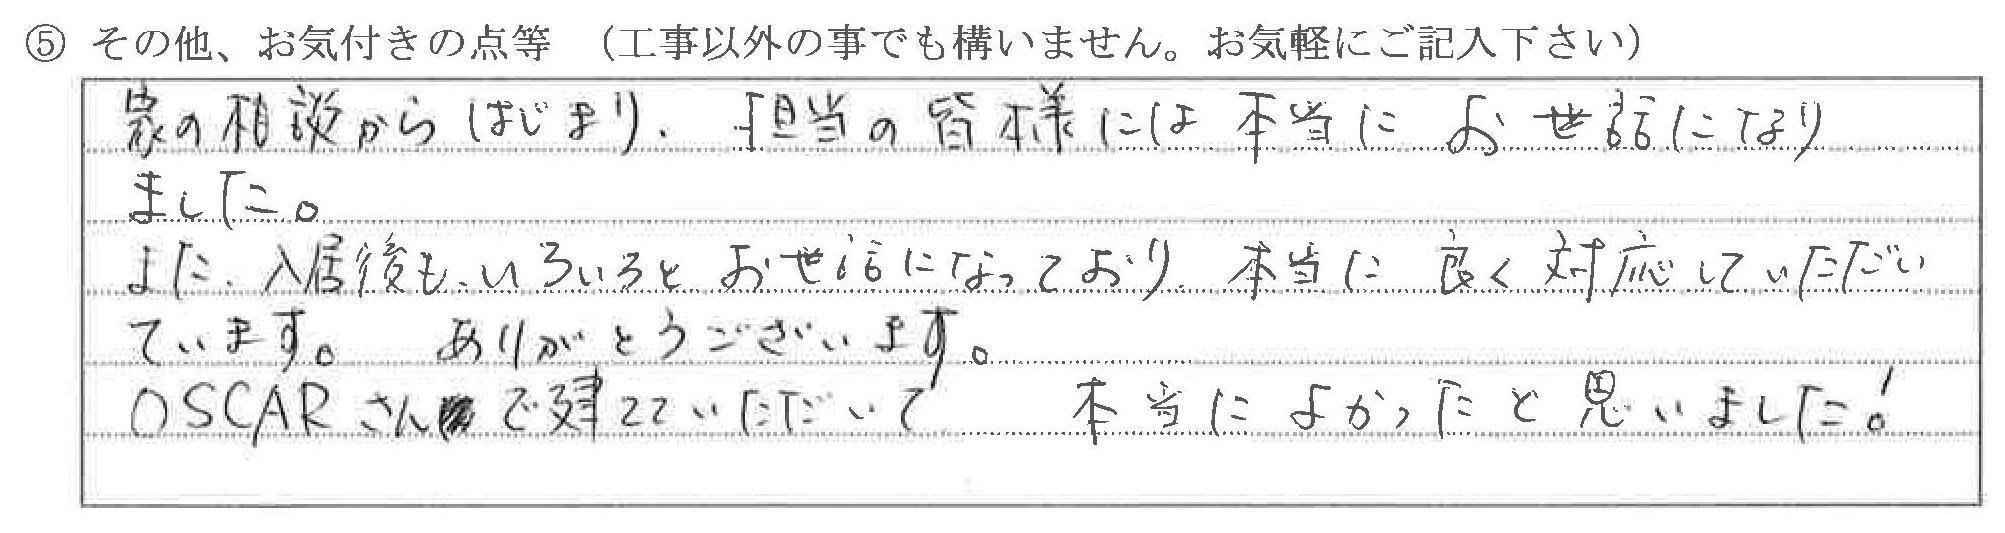 ⑤ その他、お気付きの点等 （工事以外の事でも構いません。お気軽にご記入下さい）
家の相談からはじまり、担当の皆様には本当にお世話になり
ました。
また、入居後も、いろいろとお世話になっており、本当に良く対応していただい
ています。 ありがとうございます。
OSCARさんで建てていただいて 本当によかったと思いました!